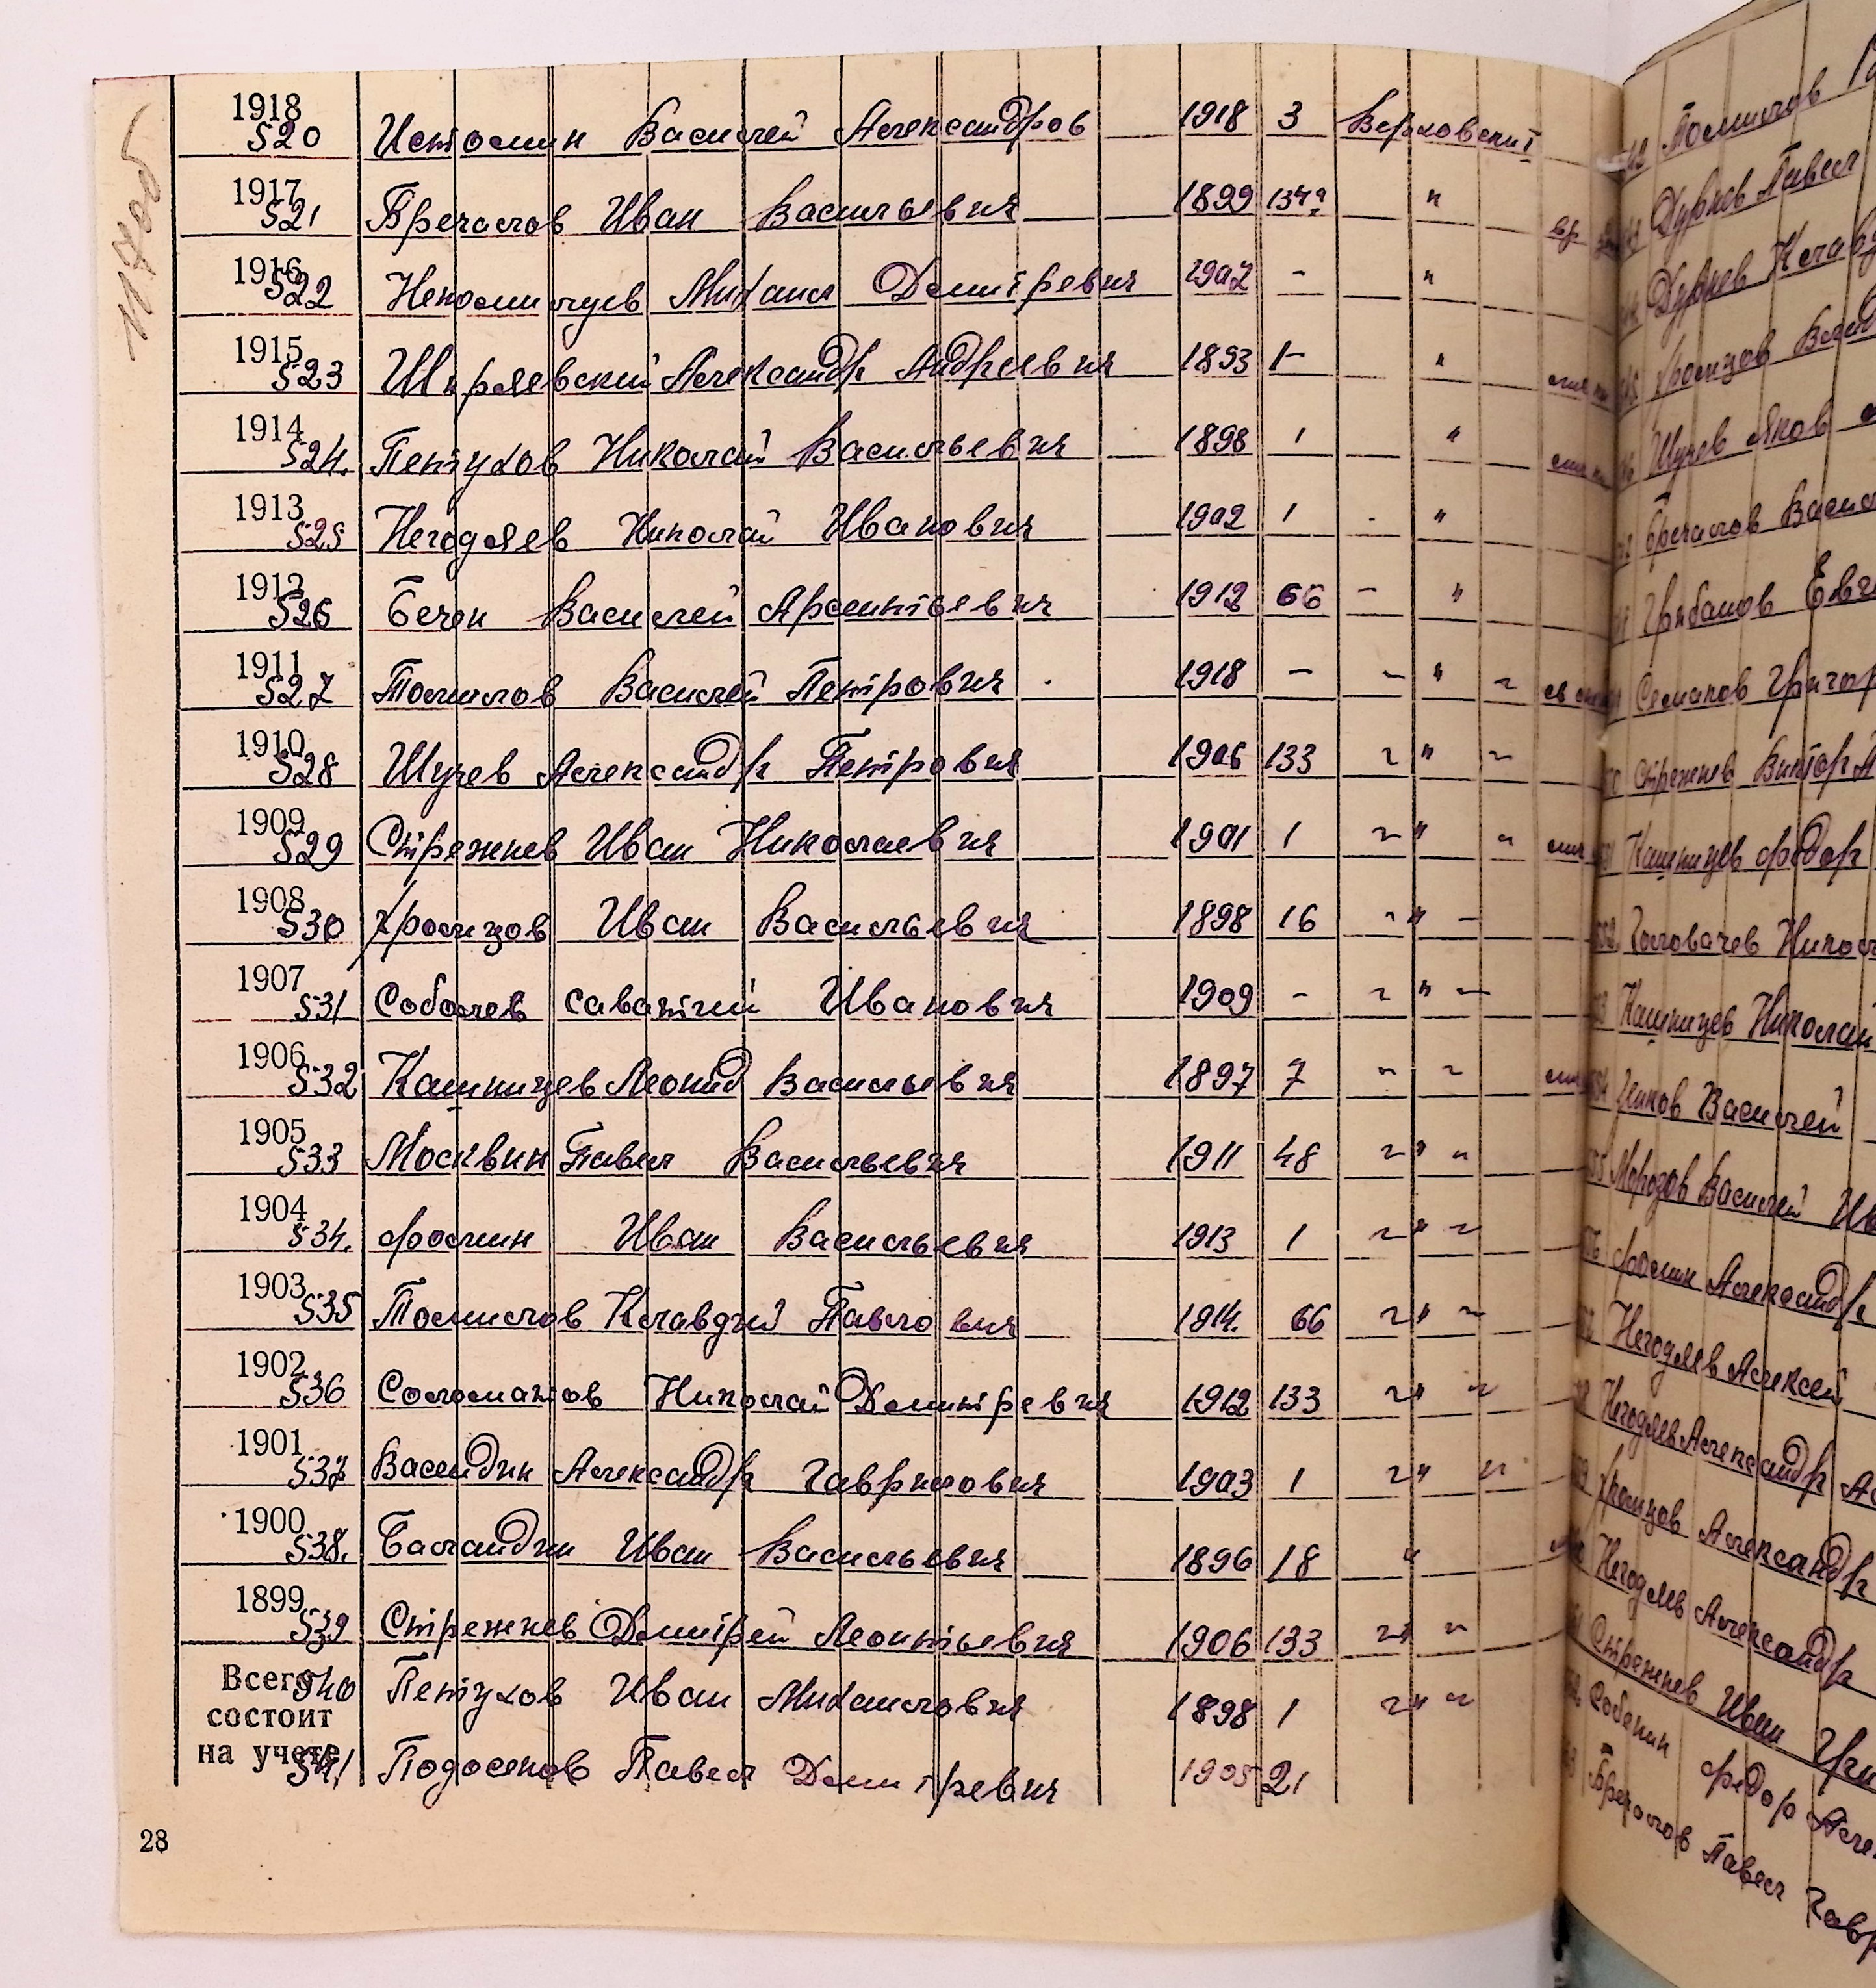 1918
520 Истомин Василей Александров 1918 3 Верховский
1917
521 Бречалов Иван Васильевич 1899 134а "
1916
522 Михаил Демитревич 1902 - "
1915
523 Ширяевский Александр Андреевич 1893 1- "
1914
524. Петухов Николай Васильевич 1898 1 "
1913
525 Негодяев Николай Иванович 1902 1 - "
1912
526 Василей Арсентьевич 1912 66 - "
1911
527 Томилов Василей Петрович 1918 - - " -
1910
528 Шучев Александр Петрович 1906 133 - " -
1909
529 Стрежнев Иван Николаевич 1901 1 - " -
1908
530 Хромцов Иван Васильевич 1898 16 - " -
1907
531 Соболев Саватий Иванович 1909 - - " -
1906
532 Кашницев Леонид Васильевич 1897 7 - -
1905
533 Москвин Павел Васильевич 1911 48 - " -
1904
534. Фомин Иван Васильевич 1913 1 - " -
1903
535 Томилов Клавдий Павлович 1914. 66 - " -
1902
536 Соломатов Николай Демитревич 1912 133 - " -
1901
537 Александр Гаврилович 1903 1 - " -
1900
538. Баландин Иван Васильевич 1896 18 "
1899
539 Стрежнев Демитрей Леонтьевич 1906 133 - " -
Всего
540 Петухов Иван Михайлович 1898 1 - " -
состоит
на учете
541 Подосенов Павел Демитревич 1905 21
28
Томилов
Дурнев Павел
Дурнев
Хромцов
Шучев Яков
Бречалов
Грибанов
Семаков Григор
Стрежнев Виктор
Кашницев Федор
Головачев Никол
Кашницев Николай
Василей
Морозов Василей Ив
Фомин Александр
Негодяев Алексей
Негодяев Александр
Хромцов Александр
Негодяев Александр
Стрежнев Иван
Собенин Федор
Бречалов Павел Гавр